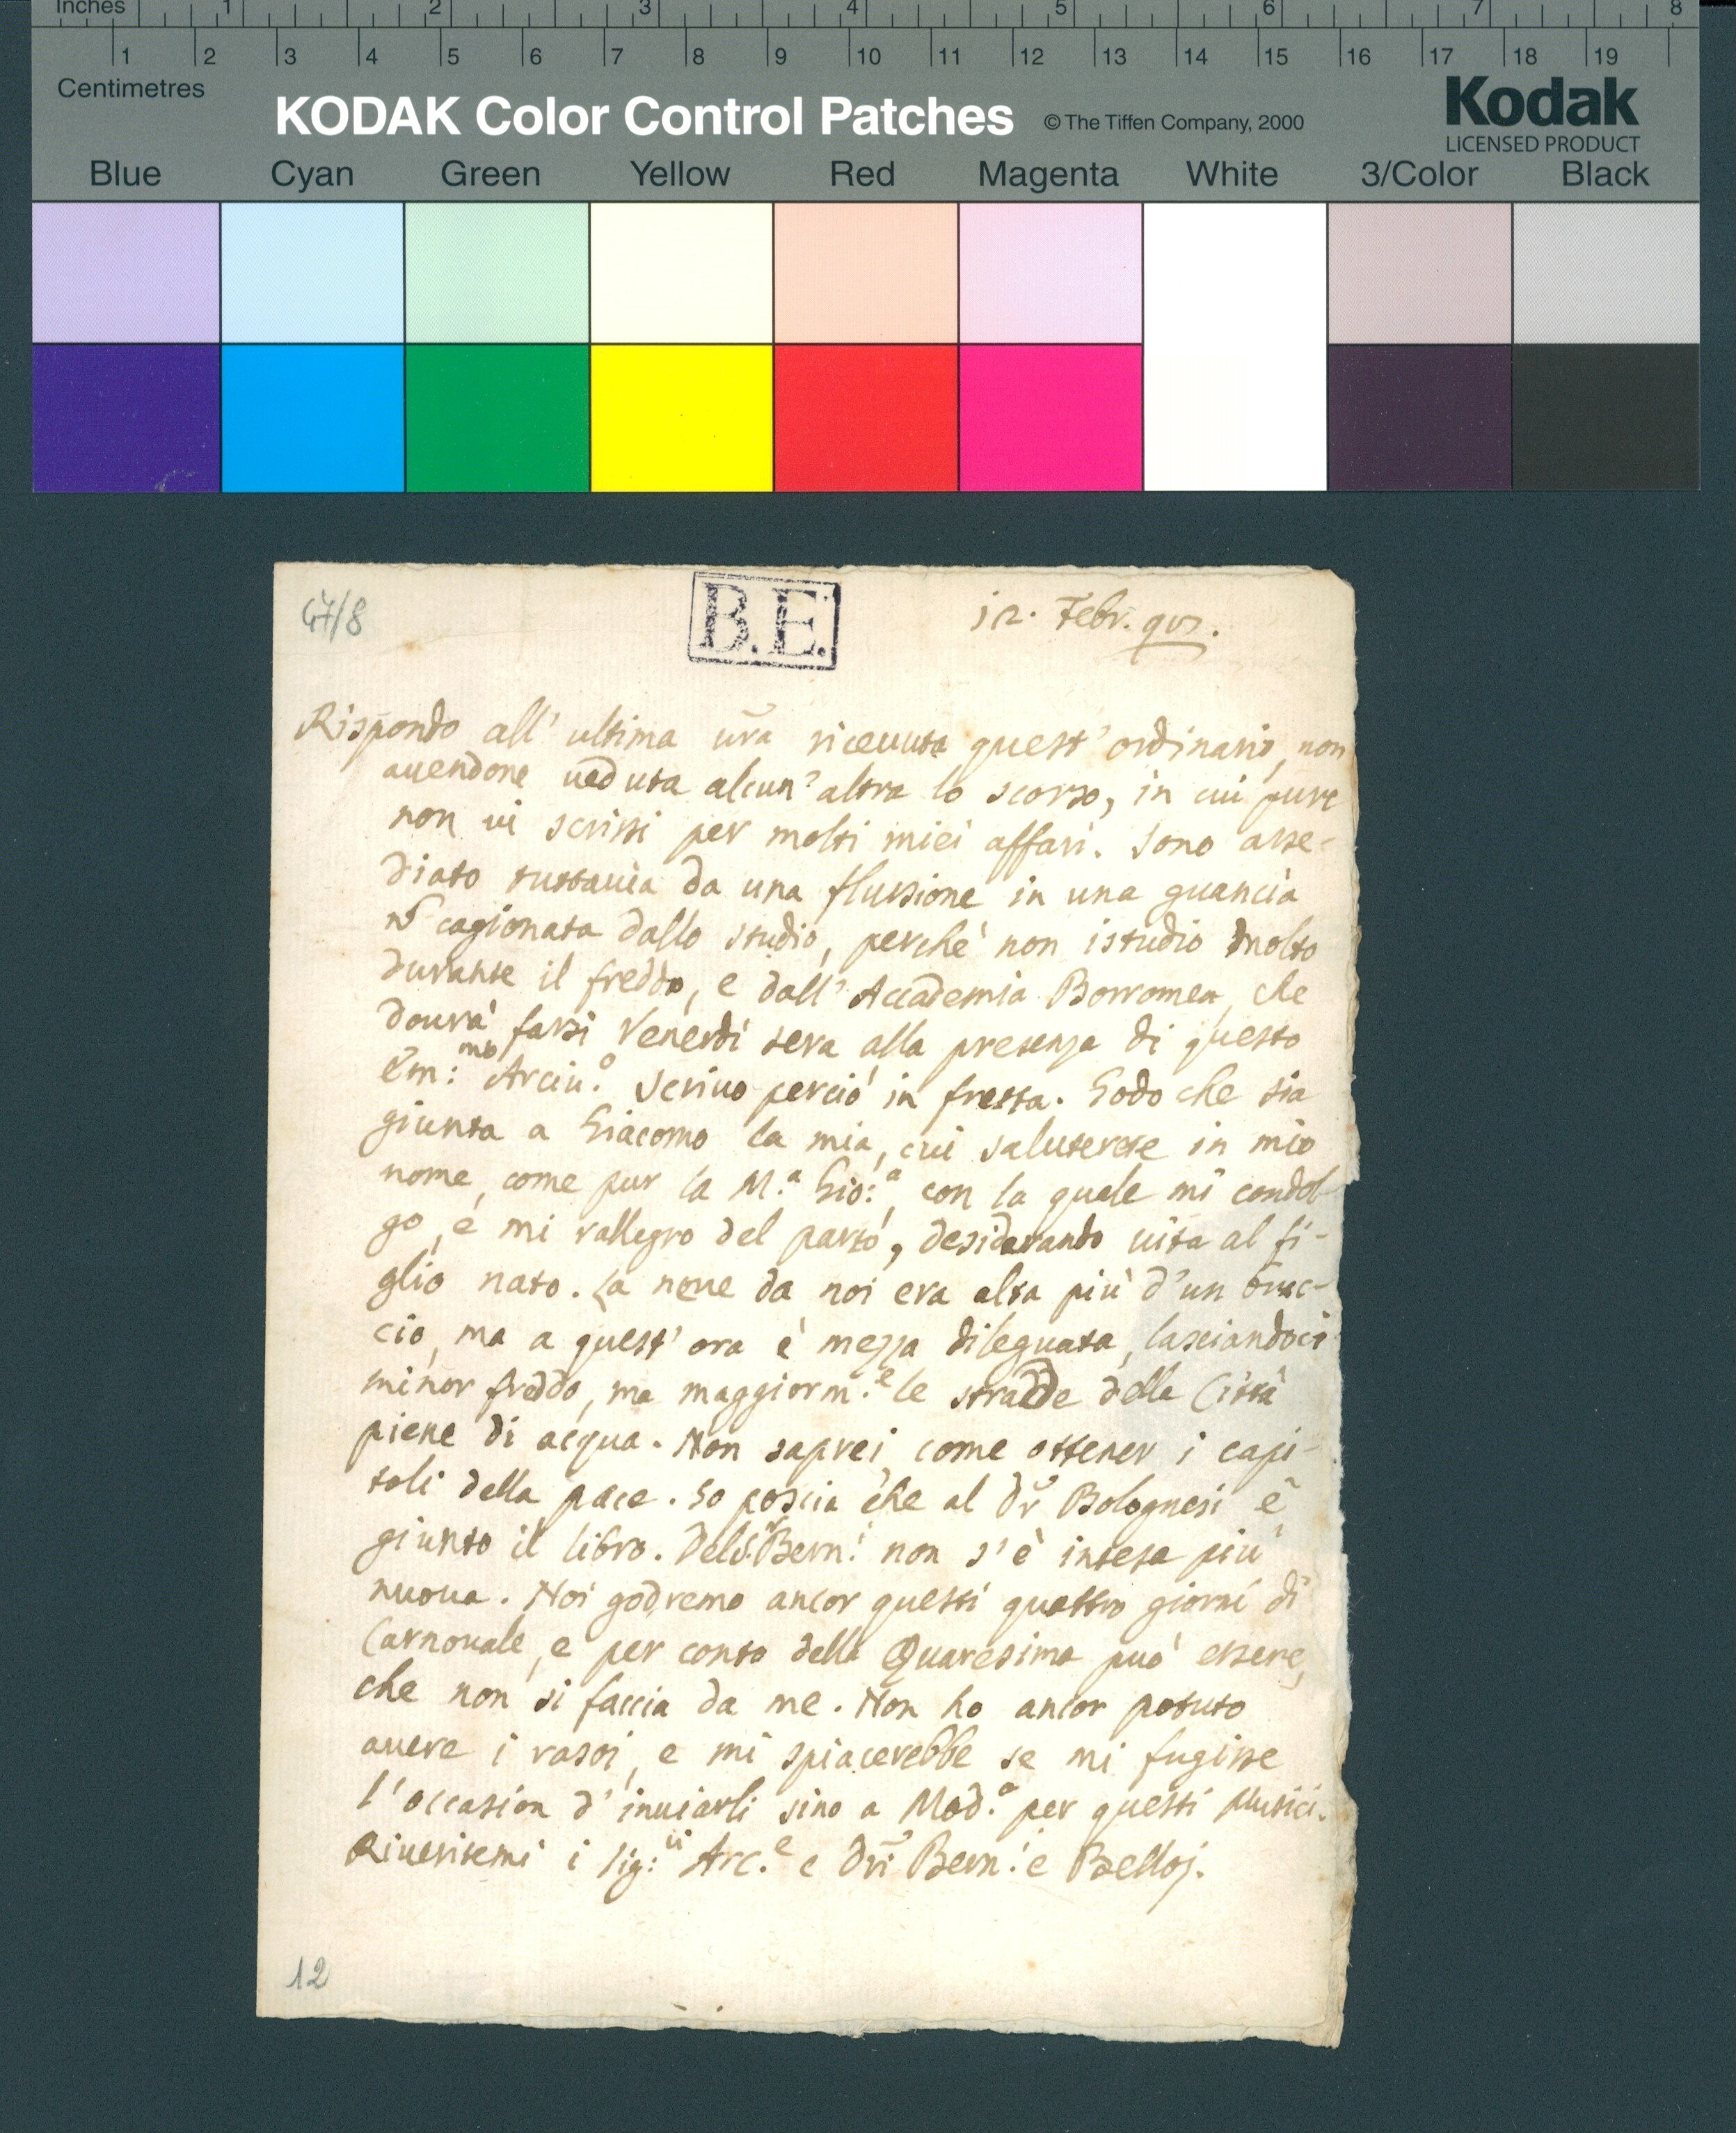 Inches 1 2 3 4 5 6 7 8
1 2 3 4 5 6 7 8 9 10 11 12 13 14 15 16 17 18 19
Centimetres
KODAK Color Control Patches © The Tiffen Company, 2000
Kodak
LICENSED PRODUCT
Blue Cyan Green Yellow Red Magenta White 3/Color Black
47/8
B.E.
12. Febr.
Rispondo all' ultima ura riceuuta quest' ordinario, non
auendone ueduta alcun' altra lo scorso, in cui pure
non ui scrissi per molti miei affari. Sono asse-
diato tuttauia da una flussione in una guancia
cagionata dallo studio, perchè non istudio molto
durante il freddo, e dall' Accademia Borromea, che
dourà farsi Venerdì sera alla presenza di questo
Em:mo Arciu.o Scriuo perciò in fretta. Godo che sia
giunta a Giacomo la mia, cui saluterete in mio
nome, come pur la M.a Gio:a, con la quale mi condol-
go, e mi rallegro del parto, desiderando uita al fi-
glio nato. La neue da noi era alta più d'un brac-
cio, ma a quest' ora è mezza dileguata, lasciandoci
minor freddo, ma maggiorm.e le strade della Città
piene di acqua. Non saprei come ottener i capi-
toli della pace. So poscia che al Dr Bolognesi è
giunto il libro. Del S.r Bern.i non s' è intesa più
nuoua. Noi godremo ancor questi quattro giorni di
Carnouale, e per conto della Quaresima può essere,
che non si faccia da me. Non ho ancor potuto
auere i rasoi, e mi spiacerebbe se mi fugisse
l'occasion d' inuiarli sino a Mod.a per questi Musici.
Riueritemi i Sig:ri Arc.e e Dri Bern.i e Belloj.
12